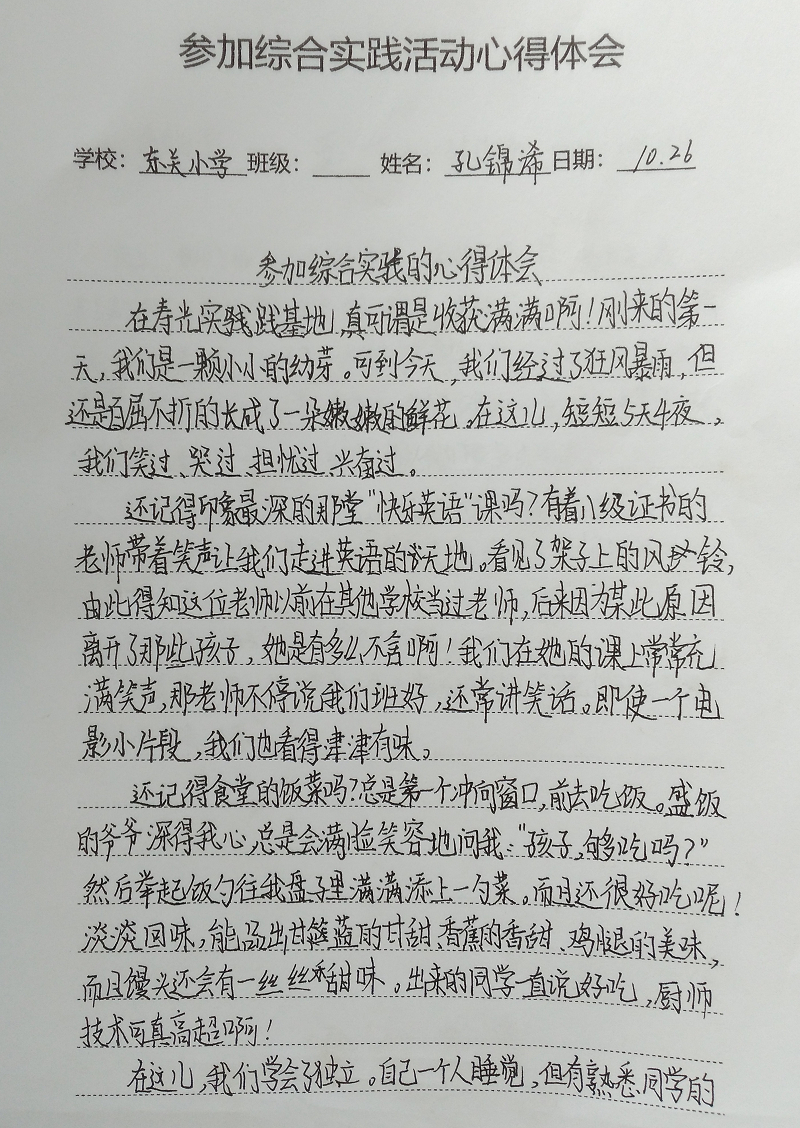 参加综合实践活动心得体会
学校：东关小学 班级：____ 姓名：孔锦浠 日期：10.26
参加综合实践的心得体会
在寿光实践基地,真可谓是收获满满啊！刚来的第一
天,我们是一颗小小的幼芽。可到今天,我们经过了狂风暴雨,但
还是百屈不折的长成了一朵嫩嫩的鲜花。在这儿,短短5天4夜,
我们笑过、哭过、担忧过、兴奋过。
还记得印象最深的那堂“快乐英语”课吗？有着八级证书的
老师带着笑声让我们走进英语的天地。看见了架子上的风铃,
由此得知这位老师以前在其他学校当过老师,后来因为某此原因
离开了那些孩子,她是有多么不舍啊！我们在她的课上常常充
满笑声,那老师不停说我们班好,还常讲笑话。即使一个电
影小片段,我们也看得津津有味。
还记得食堂的饭菜吗？总是第一个冲向窗口,前去吃饭。盛饭
的爷爷深得我心,总是会满脸笑容地问我：“孩子,够吃吗？”
然后举起饭勺往我盘子里满满添上一勺菜。而且还很好吃呢！
淡淡回味,能品出甘蓝的甘甜、香蕉的香甜、鸡腿的美味,
而且馒头还会有一丝丝香甜味。出来的同学一直说好吃,厨师
技术可真高超啊！
在这儿,我们学会了独立。自己一个人睡觉,但有熟悉同学的